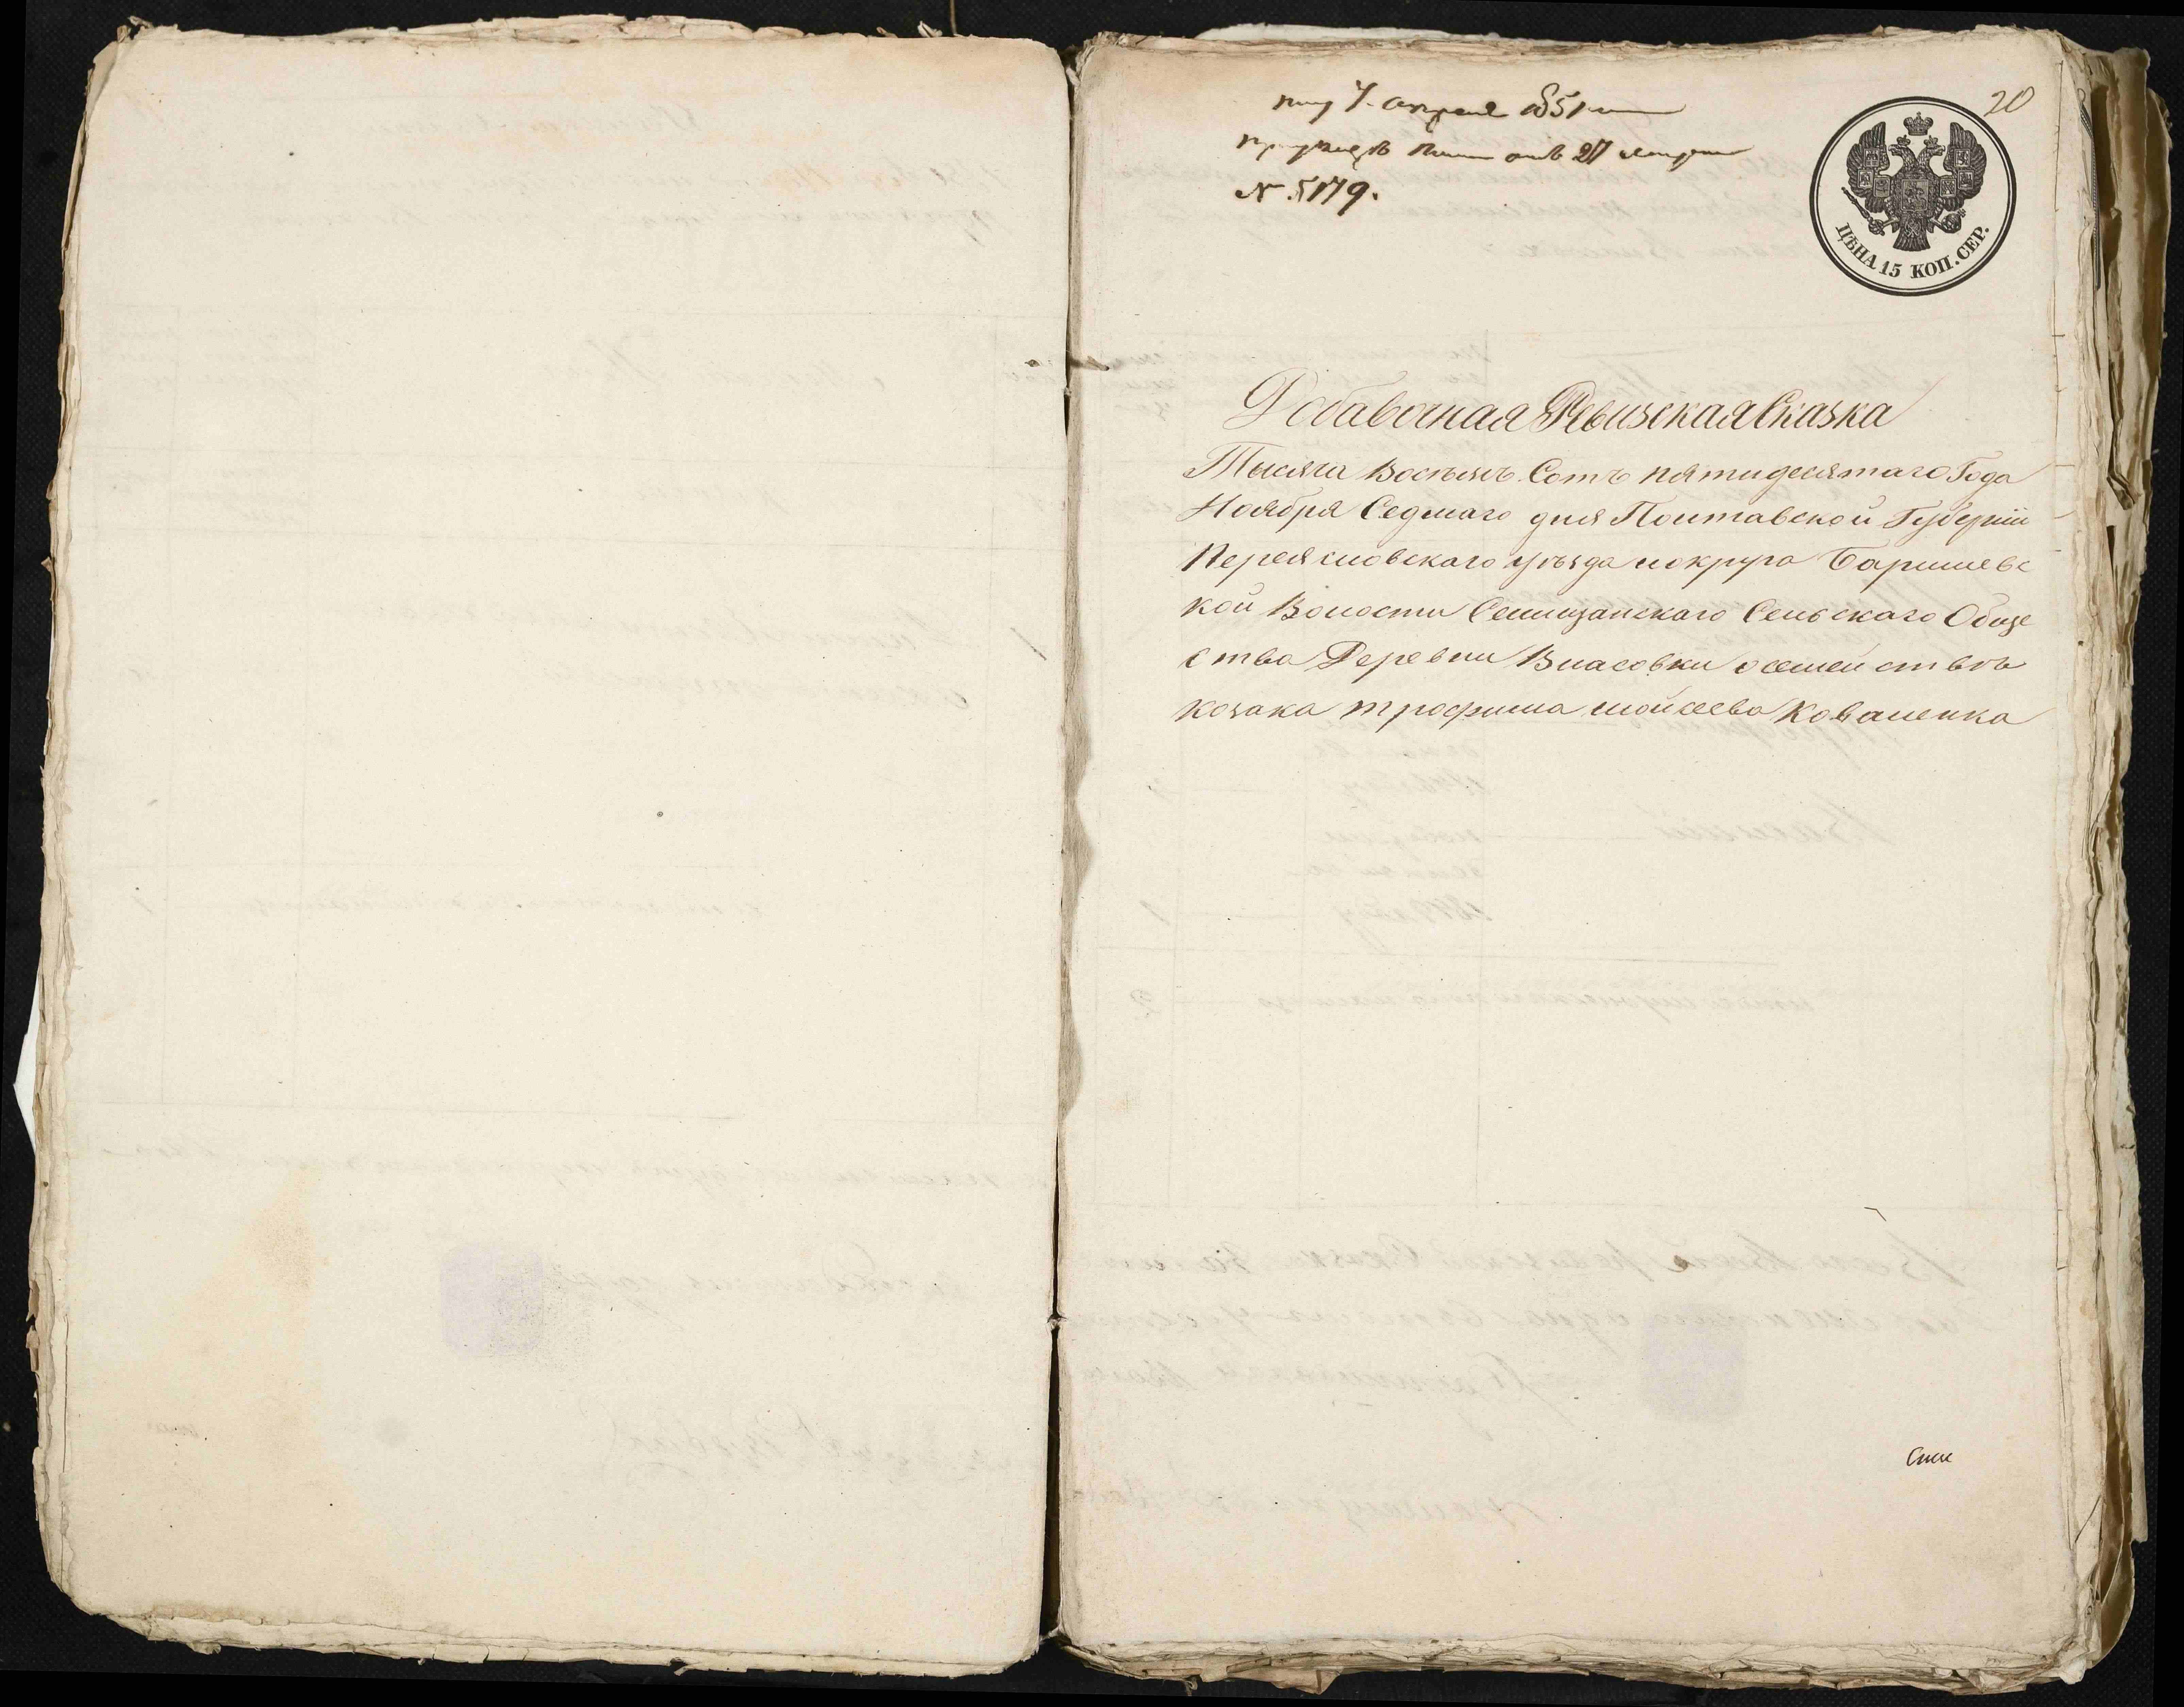 20
7 апреля 1851
27
№ 5179.
ЦѢНА 15 КОП. СЕР.
Добавочная Ревизская Сказка
Тысяча Восъемъ Сотъ пятидесятаго Года
Ноября Седмаго дня Полтавской Губерніи
Переясловскаго уѣзда и округа Баришевс
кой Волости Селищанскаго Сельскаго Обще
ства Деревни Власовки о семействѣ
козака трофима мойсеева Коваленка